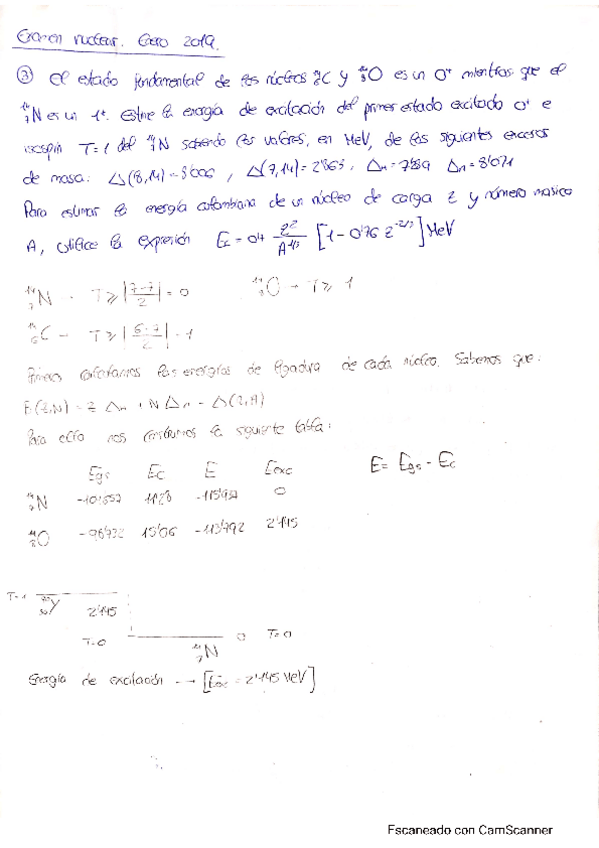 Examen nuclear. Enero 2019.
③ El estado fundamental de los núcleos ¹⁴₆C y ¹⁴₈O es un 0⁺ mientras que el
¹⁴₇N es un 1⁺. Estime la energía de excitación del primer estado excitado 0⁺ e
isospín T=1 del ¹⁴₇N sabiendo los valores, en MeV, de los siguientes excesos
de masa: Δ(8,14)=8'006, Δ(7,14)=2'863, Δn=7'289 Δn=8'071
Para estimar la energía coulombiana de un núcleo de carga Z y número masico
A, utilice la expresión Ec = 0'4 Z²/A^1/3 [1-0'76 Z^-2/3] MeV
¹⁴₇N - T≥|7-7/2| = 0 ¹⁴₈O → T≥ 1
¹⁴₆C - T≥|6-7/2| - 1
Primero calculamos las energías de ligadura de cada núcleo. Sabemos que:
B(Z,N) = Z Δn + N Δn - Δ(Z,A)
Para ello nos construimos la siguiente tabla:
Egs Ec E Eexc E = Egs - Ec
¹⁴₇N 0
¹⁴₈O -98'732 15'06 -113'792 2'145
T=1 2'145
T=0 ¹⁴₇N 0 T=0
Energía de excitación → [Eexc = 2'145 MeV]
Escaneado con CamScanner